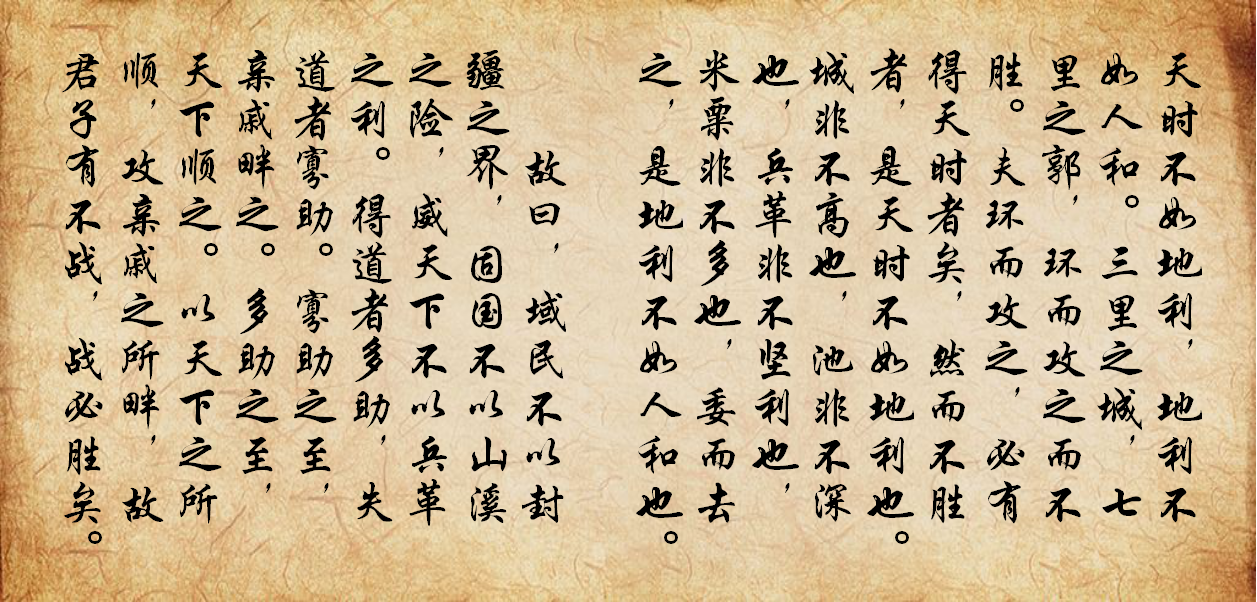 天时不如地利，地利不
如人和。三里之城，七
里之郭，环而攻之而不
胜。夫环而攻之，必有
得天时者矣，然而不胜
者，是天时不如地利也。
城非不高也，池非不深
也，兵革非不坚利也，
米粟非不多也，委而去
之，是地利不如人和也。
故曰，域民不以封
疆之界，固国不以山溪
之险，威天下不以兵革
之利。得道者多助，失
道者寡助。寡助之至，
亲戚畔之。多助之至，
天下顺之。以天下之所
顺，攻亲戚之所畔，故
君子有不战，战必胜矣。